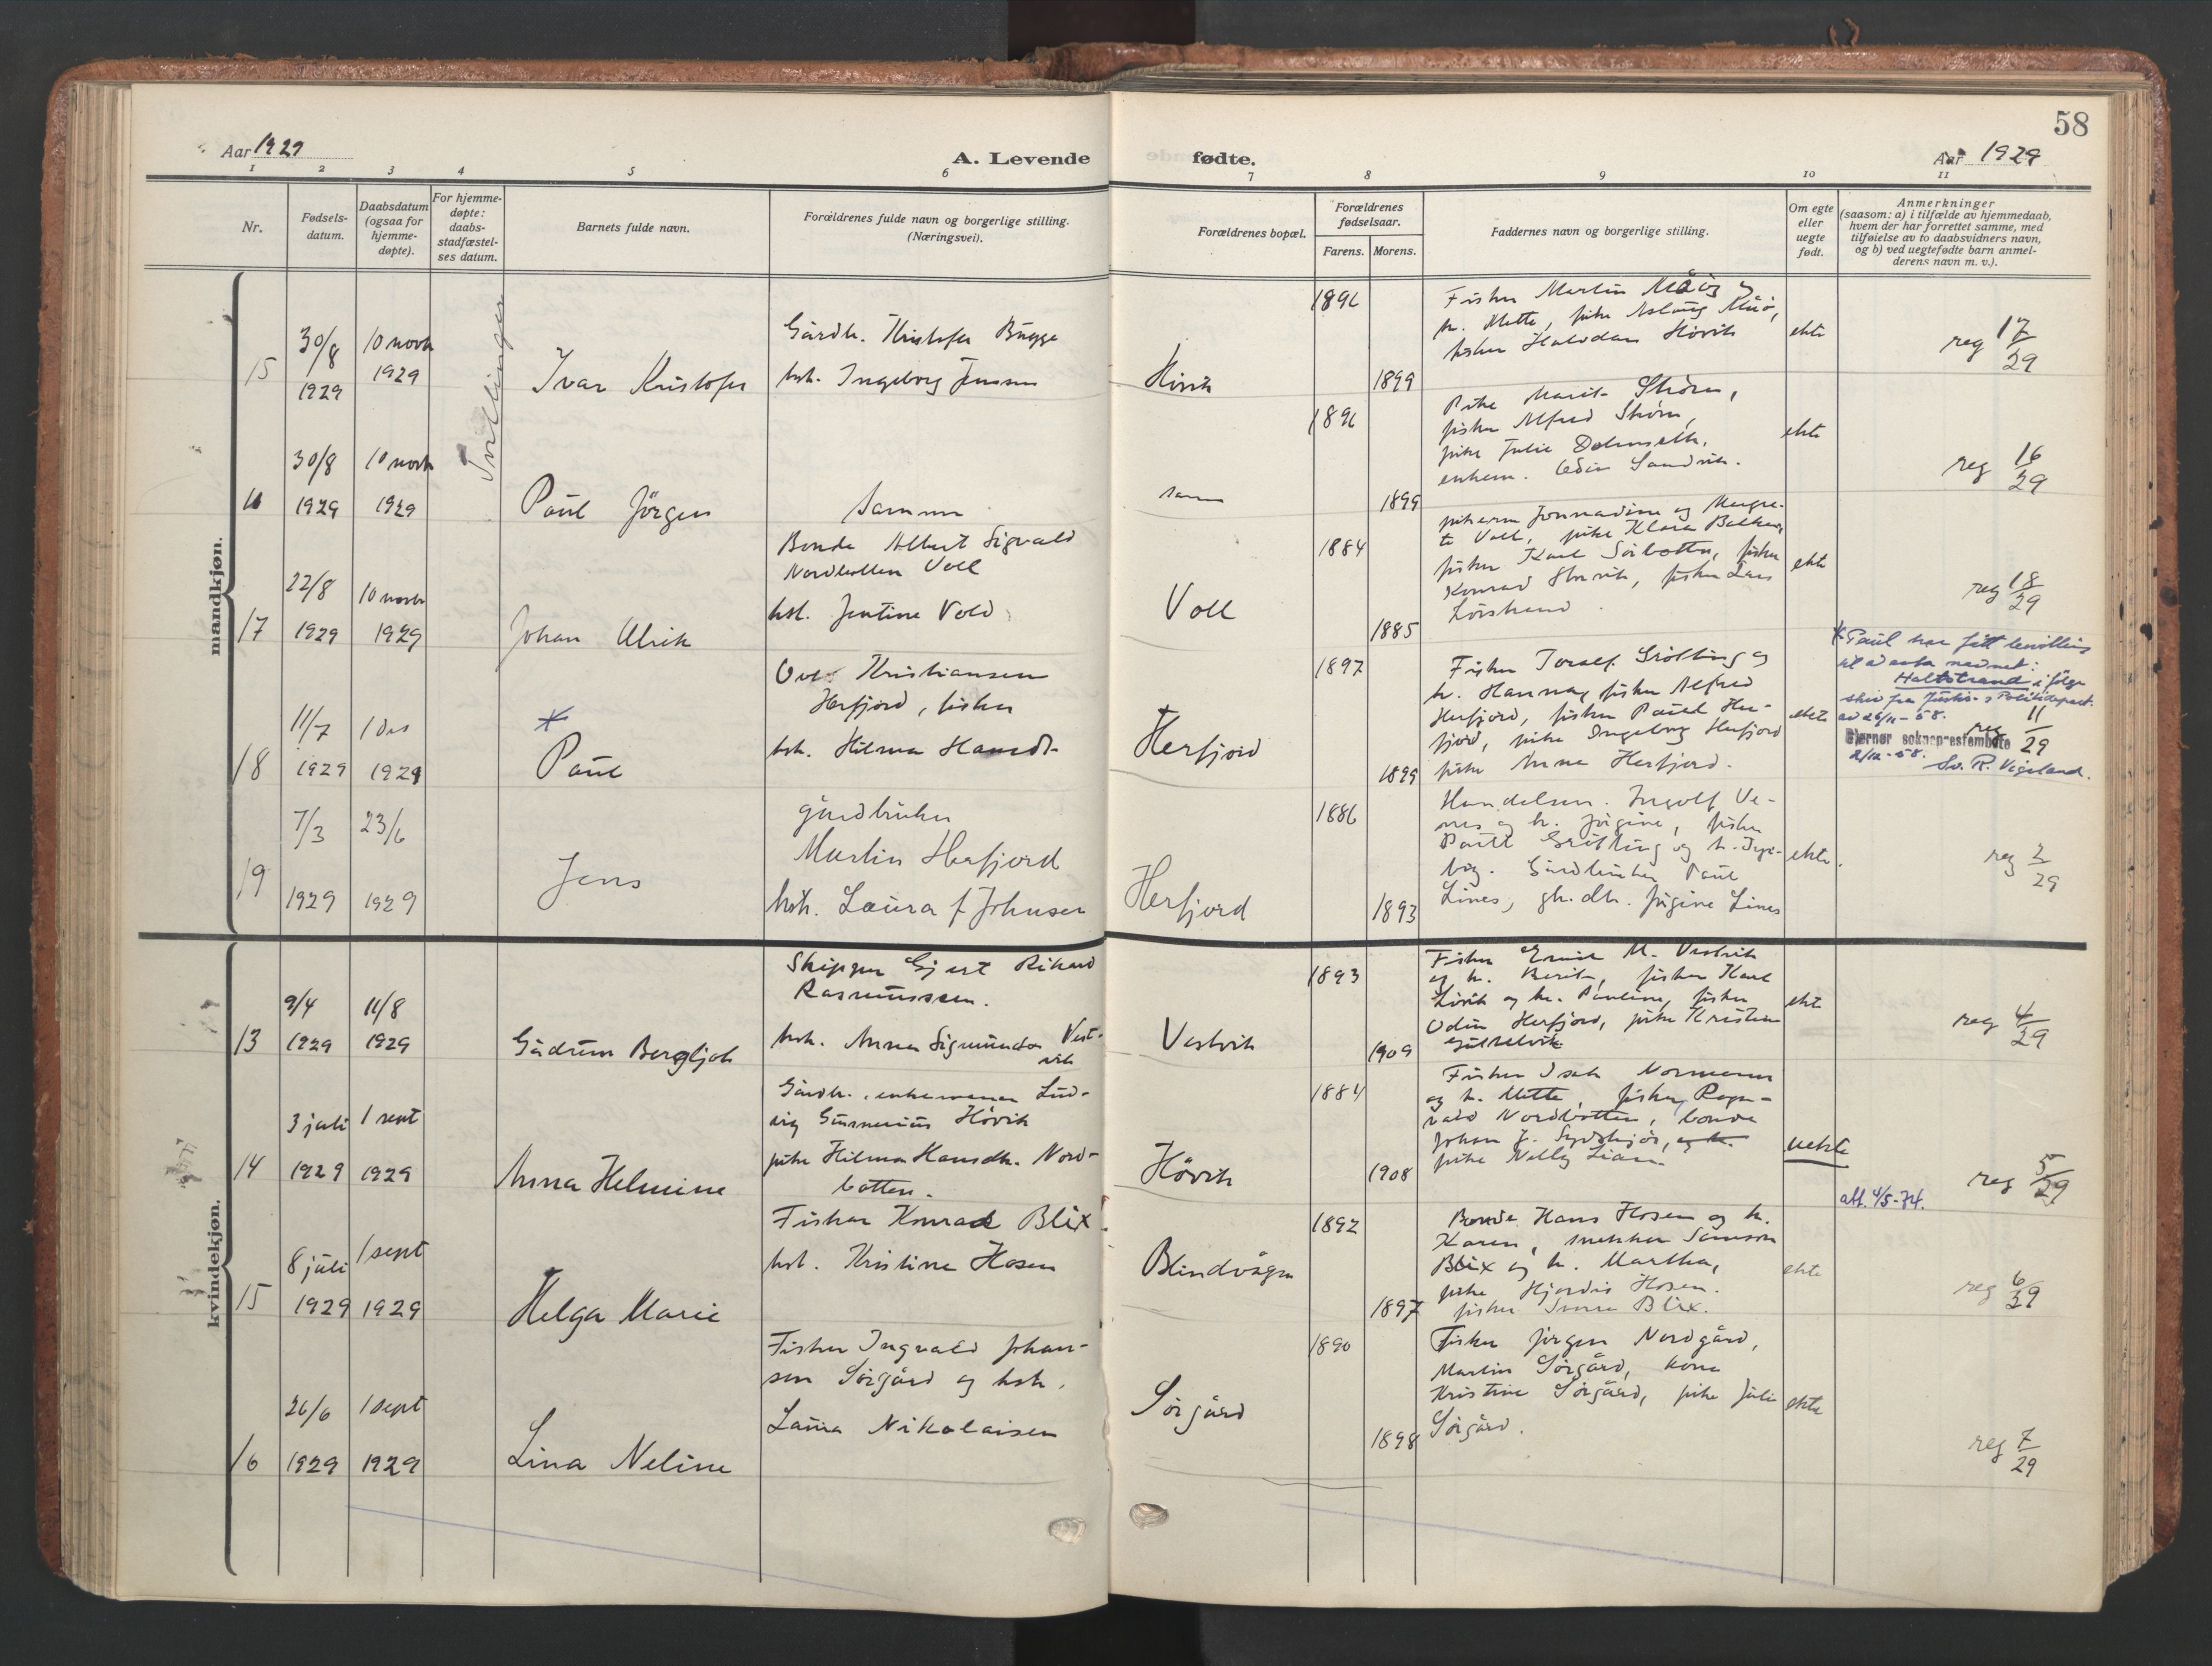 58
Aar 1929
A. Levende
fødte.
Aar 1929
1 2 3 4 5 6 7 8 9 10 11
Nr.
Fødsels-
datum.
Daabsdatum
(ogsaa for
hjemme-
døpte).
For hjemme-
døpte:
daabs-
stadfæstel-
ses datum.
Barnets fulde navn.
Forældrenes fulde navn og borgerlige stilling.
(Næringsvei).
Forældrenes bopæl.
Forældrenes
fødselsaar.
Farens. Morens.
Faddernes navn og borgerlige stilling.
Om egte
eller
uegte
født.
Anmerkninger
(saasom: a) i tilfælde av hjemmedaab,
hvem der har forrettet samme, med
tilføielse av to daabsvidners navn,
og b) ved uegtefødte barn anmel-
derens navn m. v.).
mandkjøn.
Tvillinger
15
30/8
1929
10 novb
1929
Ivar Kristofer
Gårdb. Kristofer Bugge
hst. Ingeborg Jensen
Hövik
1899
Fisker Martin
k. Mette, pike Aslaug
fisker Halvdan Hövik
ekte
reg 17/29
16
30/8
1929
10 novb
1929
Paul Jörgen
Samme
samme
1899
Pike Marit Ström,
fisker Alfred Ström,
pike Julie
enkem. Edin Sandvik.
ekte
reg 16/29
17
22/8
1929
10 novb
1929
Johan Ulrik
Bonde Albert Sigvald
Nordbotten Voll
hst. Jentine Vold
Voll
1884
1885
og Margre-
te Voll, pike Klara
fisker Karl Sörbotten, fisker
Konrad fisker Lars
ekte
reg 18/29
18
11/7
1929
1 des
1929
*
Paul
Kristiansen
Herfjord, fisker
hst. Hilma
Herfjord
1897
1899
Fisker Toralf Grötting og
k. Hanna, fisker Alfred
Herfjord, fisker Paul Her-
fjord, pike Ingeborg Herfjord
pike Anna Herfjord.
ekte
* Paul har fått bevilling
til å anta navnet:
Haltstrand ifölge
skriv fra Justis- & Politidepart.
av 26/11-58.
Bjørnør sokneprestembete
2/12-58.
Sv. R. Vigeland.
reg 11/29
19
7/3
1929
23/6
1929
Jens
gårdbruker
Martin Herfjord
hst. Laura f. Johnsen
Herfjord
1886
1893
Handelsm. Ingolf Ve-
nes og k. Jörgine, fisker
Paul Grötting og k. Inge-
borg. Gårdbruker Paul
Lines, gb.dtr. Jörgine Lines
ekte.
reg 2/29
kvindekjøn.
13
9/4
1929
11/8
1929
Gudrun Bergljot
Skipper Gjert Rikard
Rasmussen.
hst. Anna Sigmunda Vest-
vik
Vestvik
1893
1909
Fisker Ernst M. Vestvik
og k. Berit, fisker Karl
Lövik og k. Pauline, fisker
Odin Herfjord, pike Kristine
ekt
reg 4/29
14
3 juli
1929
1 sept
1929
Anna Helmine
Gårdb., enkemann Lud-
vig Gunnerius Hövik
pike Hilma Hansdtr. Nord-
botten.
Hövik
1884
1908
Fisker Isak Normann
og k. Mette, fisker Ragn-
vald Nordbotten, bonde
Johan J. Sydskjör, og k.
pike Nelly Lian
uekte
att. 4/5-74.
reg 5/29
15
8 juli
1929
1 sept
1929
Helga Marie
Fisker Konrad Blix
hst. Kristine Hosen
Blindvågen
1892
1897
Bonde Hans Hosen og k.
Karen, snekker Samson
Blix og k. Martha,
pike Hjördis Hosen.
fisker Sverre Blix.
ekte
reg 6/29
16
26/6
1929
1 sept
1929
Lina Neline
Fisker Ingvald Johan-
sen Sörgård og hst.
Laura Nikolaisen
Sörgård
1890
1898
Fisker Jörgen Nordgård,
Martin Sörgård, kone
Kristine Sörgård, pike Julie
Sörgård.
ekte
reg 7/29